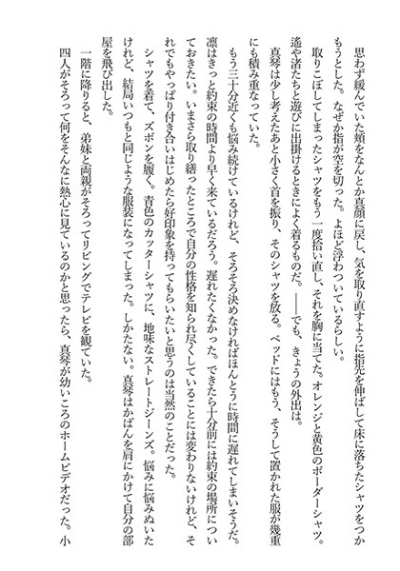 思わず緩んでいた頬をなんとか真顔に戻し、気を取り直すように指先を伸ばして床に落ちたシャツをつか
もうとした。なぜか指が空を切った。よほど浮ついているらしい。
取りこぼしてしまったシャツをもう一度拾い直し、それを胸に当てた。オレンジと黄色のボーダーシャツ。
遙や渚たちと遊びに出掛けるときによく着るものだ。――でも、きょうの外出は。
真琴は少し考えたあと小さく首を振り、そのシャツを放る。ベッドにはもう、そうして置かれた服が幾重
にも積み重なっていた。
もう三十分近くも悩み続けているけれど、そろそろ決めなければほんとうに時間に遅れてしまいそうだ。
凛はきっと約束の時間より早く来ているだろう。遅れたくなかった。できたら十分前には約束の場所につい
ておきたい。いまさら取り繕ったところで自分の性格を知られ尽くしていることには変わりないけれど、そ
れでもやっぱり付き合いはじめたら好印象を持ってもらいたいと思うのは当然のことだった。
シャツを着て、ズボンを履く。青色のカッターシャツに、地味なストレートジーンズ。悩みに悩みぬいた
けれど、結局いつもと同じような服装になってしまった。しかたない。真琴はかばんを肩にかけて自分の部
屋を飛び出した。
一階に降りると、弟妹と両親がそろってリビングでテレビを観ていた。
四人がそろって何をそんなに熱心に見ているのかと思ったら、真琴が幼いころのホームビデオだった。小